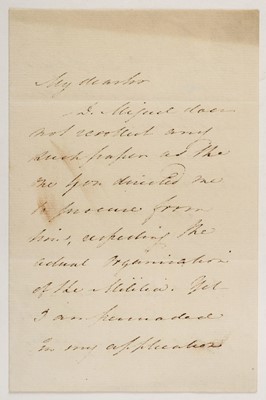 My dear Sir
D. Miguel does
not recollect any
such paper as the
one you directed me
to procure from
him, respecting the
actual Organization
of the Militia. Yet
I am persuaded
in my application